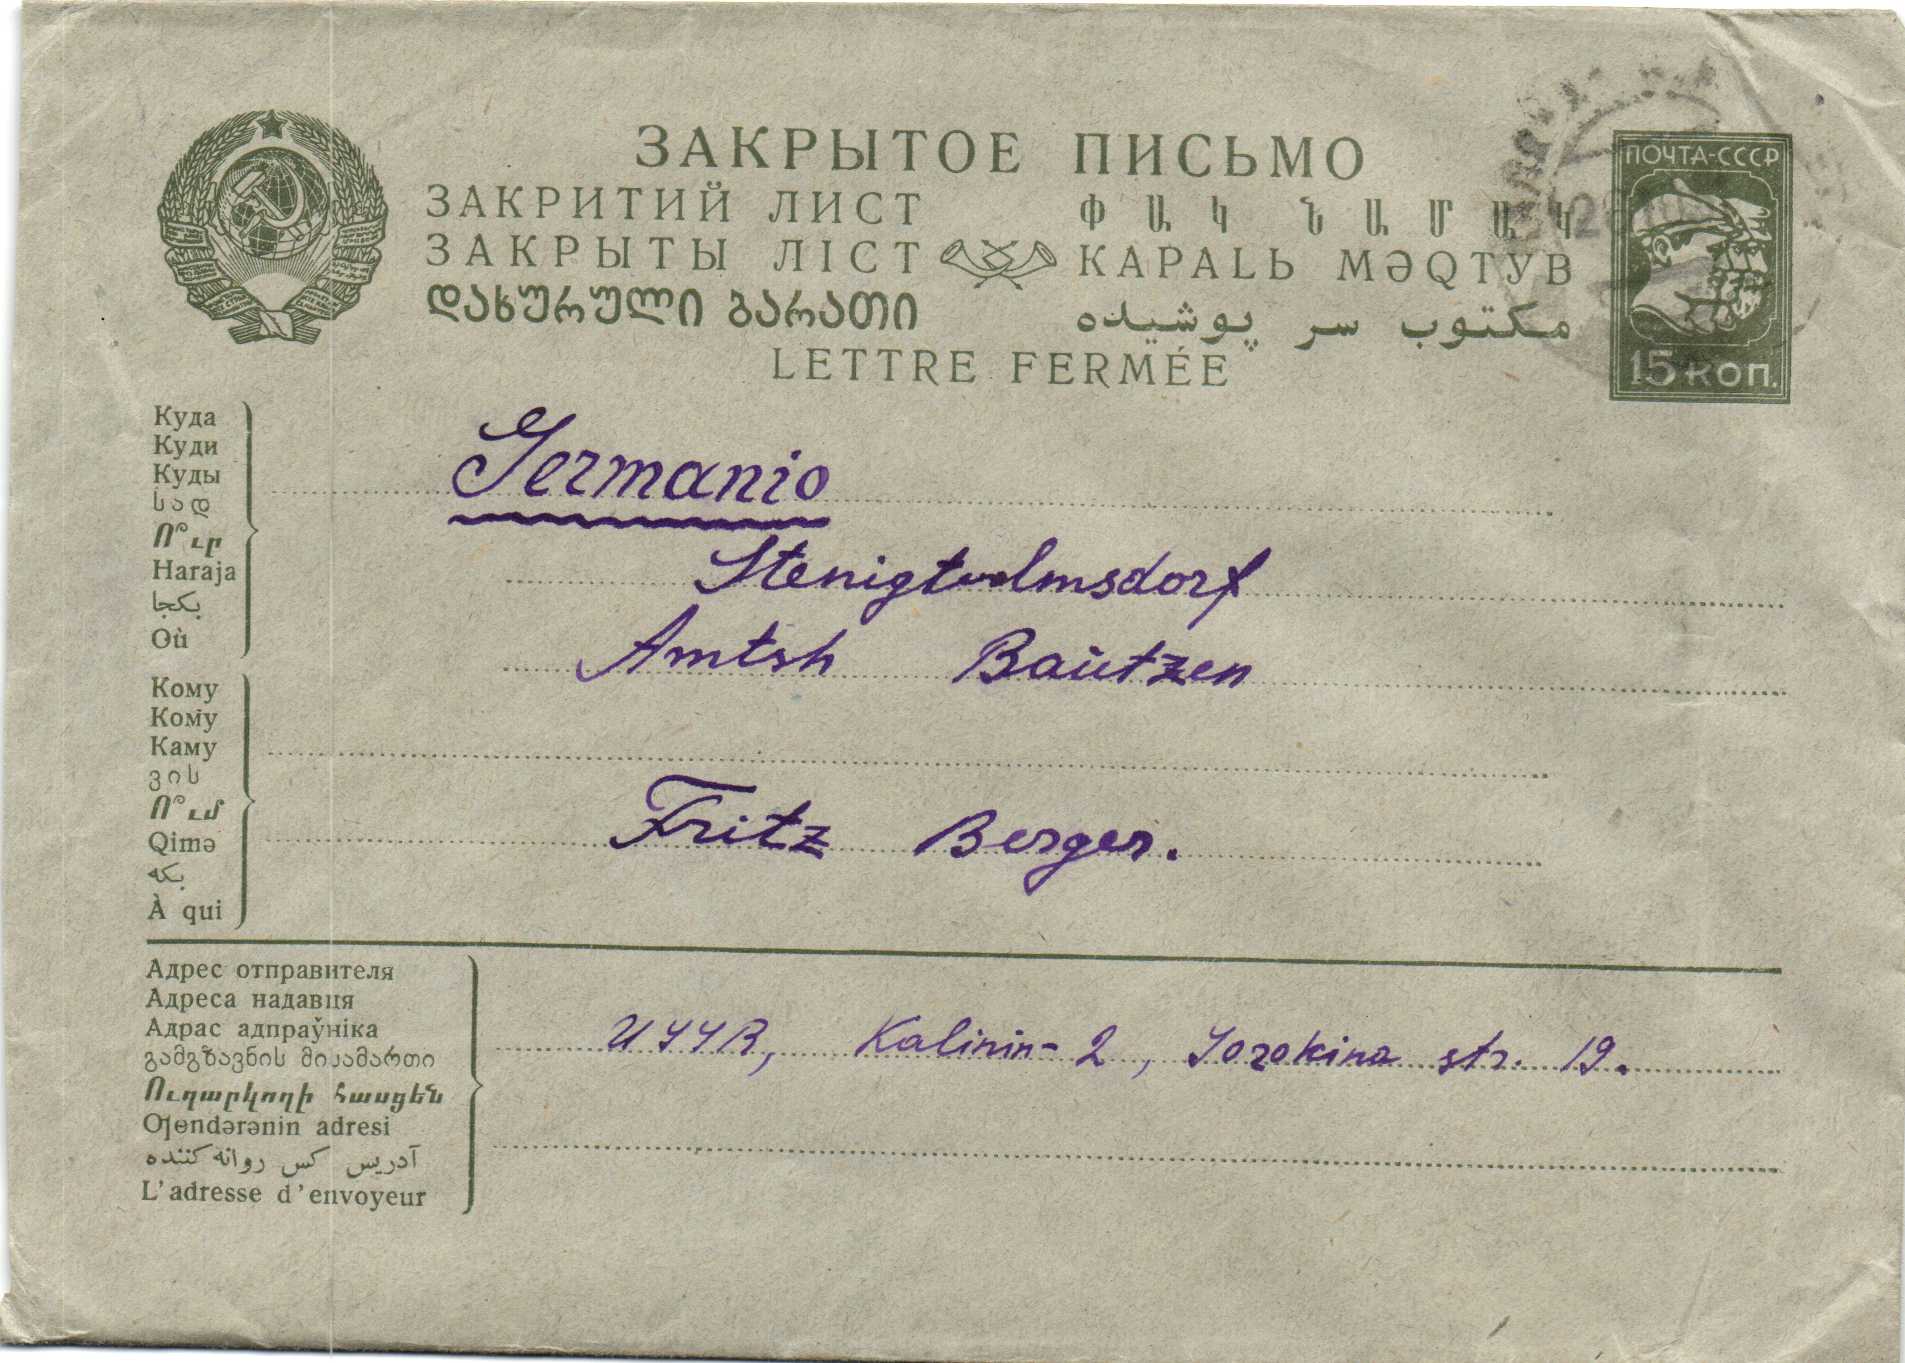 ЗАКРЫТОЕ ПИСЬМО
ЗАКРИТИЙ ЛИСТ
ЗАКРЫТЫ ЛІСТ
ᲓᲐᲮᲣᲠᲣᲚᲘ ᲑᲐᲠᲐᲗᲘ
ՓԱԿ ՆԱՄԱԿ
KAPALЬ MƏQTYB
مكتوب سر پوشيده
LETTRE FERMÉE
ПОЧТА-СССР
15 КОП.
Куда
Куди
Куды
სად
Ո՞ւր
Haraja
بكجا
Où
Germanio
Stenigtwolmsdorf
Amtsh Baŭtzen
Кому
Кому
Каму
ვის
Ո՞ւմ
Qimə
بكه
À qui
Fritz Berger.
Адрес отправителя
Адреса надавця
Адрас адпраўніка
გამგზავნის მისამართი
Ուղարկողի հասցեն
Gɵndərənin adresi
آدریس کس روانه کننده
L'adresse d'envoyeur
USSR, Kalinin-2, Sorokina str. 19.